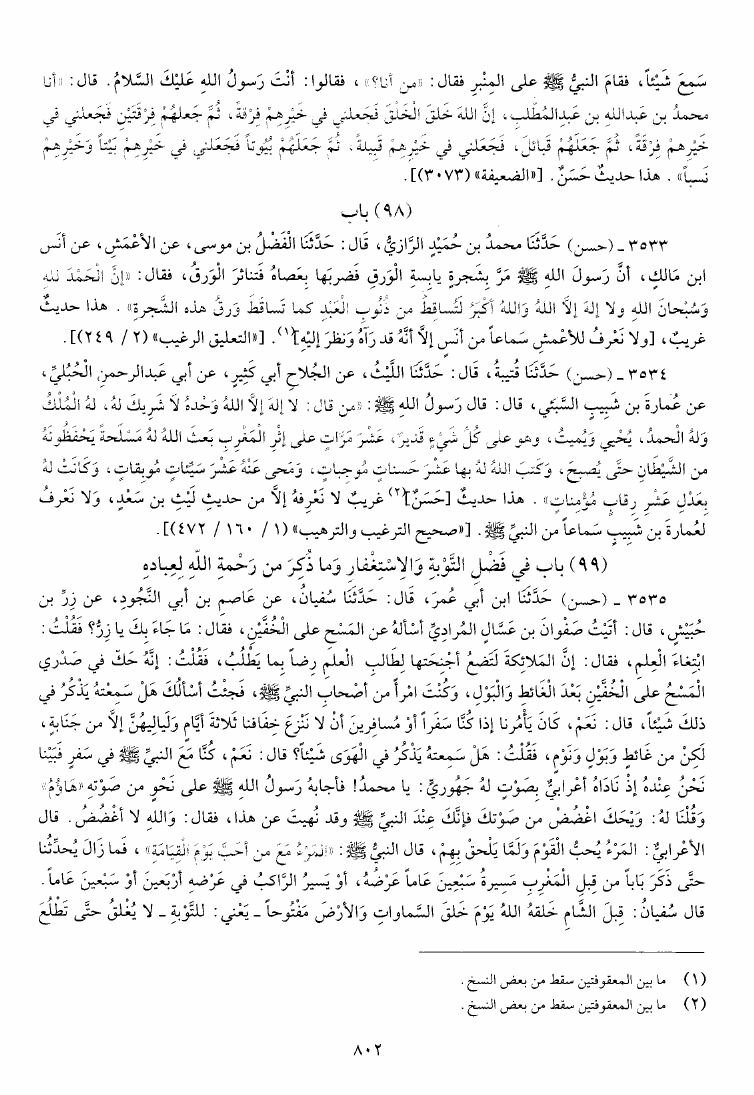 سَمِعَ شَيْئاً، فقامَ النبيُّ ﷺ على المِنْبرِ فقال: «من أنا؟» ، فقالوا: أنْتَ رَسولُ اللهِ عَلَيْكَ السَّلامُ. قال: «أنا
محمدُ بن عبداللهِ بن عبدالمُطَّلبِ، إنَّ اللهَ خَلقَ الْخَلْقَ فَجَعلني في خَيْرِهمْ فِرْقةً، ثُمَّ جَعلهُمْ فِرْقَتَيْنِ فَجعلني في
خَيْرِهمْ فِرْقَةً، ثُمَّ جَعَلَهُمْ قَبائلَ، فَجَعَلني في خَيْرِهمْ قَبيلةً، ثُمَّ جَعَلَهُمْ بُيُوتاً فَجَعَلني في خَيْرِهمْ بَيْتاً وَخَيْرِهمْ
نَسباً» . هذا حديثٌ حَسَنٌ. [«الضعيفة» (٣٠٧٣)].
(٩٨) باب
٣٥٣٣ ـ (حسن) حَدَّثنَا محمدُ بن حُمَيْدٍ الرَّازيُّ، قال: حَدَّثنَا الْفَضْلُ بن موسى، عن الأعْمَشِ، عن أنَسِ
ابن مَالكٍ، أنَّ رَسولَ اللهِ ﷺ مَرَّ بِشَجرةٍ يابسةِ الْوَرقِ فَضربَها بِعَصاهُ فَتناثَر الْوَرقُ، فقال: «إنَّ الْحَمْدَ للهِ
وَسُبْحانَ اللهِ ولا إلهَ إلاَّ اللهُ وَاللهُ أكْبَرُ لَتُساقِطُ من ذُنُوبِ الْعَبْدِ كما تَساقَطَ وَرقُ هذه الشَّجرةِ» . هذا حديثٌ
غريبٌ، [ولا نَعْرفُ للأعْمشِ سَماعاً من أنَسٍ إلاَّ أنَّهُ قد رَآهُ وَنَظرَ إليْهِ](١). [«التعليق الرغيب» (٢ / ٢٤٩)].
٣٥٣٤ ـ (حسن) حَدَّثنَا قُتيبةُ، قال: حَدَّثنَا اللَّيْثُ، عن الجُلاحِ أبي كَثِيرٍ، عن أبي عَبدالرحمنِ الْحُبُليِّ،
عن عُمارةَ بن شَبِيبٍ السَّبَئيِ، قال: قال رَسولُ اللهِ ﷺ: «من قال: لا إلهَ إلاَّ اللهُ وَحْدهُ لاَ شَريكَ لهُ، لهُ الْمُلْكُ
وَلهُ الْحمدُ، يُحْيي وَيُميتُ، وهو على كُلِّ شَيْءٍ قَديرٌ، عَشْرَ مَرَّاتٍ على إثْرِ الْمَغْربِ بَعثَ اللهُ لهُ مَسْلَحةً يَحْفَظُونَهُ
من الشَّيْطَانِ حتَّى يُصبِحَ، وَكَتبَ اللهُ لهُ بها عَشْرَ حَسناتٍ مُوجِباتٍ، وَمَحى عَنْهُ عَشْرَ سَيِّئاتٍ مُوبِقاتٍ، وَكَانَتْ لهُ
بِعَدْلِ عَشْرِ رِقابٍ مُؤْمِناتٍ» . هذا حديثٌ [حَسَنٌ](٢) غريبٌ لا نَعْرِفهُ إلاَّ من حديثِ لَيْثِ بن سَعْدٍ، وَلا نَعْرفُ
لعُمارةَ بن شَبِيبٍ سَماعاً من النبيِّ ﷺ. [«صحيح الترغيب والترهيب» (١ / ١٦٠ / ٤٧٢)].
(٩٩) باب في فَضْلِ التَّوْبةِ وَالاِسْتِغْفارِ وَما ذُكِرَ من رَحْمةِ اللهِ لِعِبادِه
٣٥٣٥ ـ (حسن) حَدَّثنَا ابن أبي عُمرَ، قال: حَدَّثنَا سُفيانُ، عن عَاصمِ بن أبي النَّجُودِ، عن زِرِّ بن
حُبَيْشٍ، قال: أتَيْتُ صَفْوانَ بن عَسَّالٍ المُراديَّ أسْألهُ عن المَسْحِ على الْخُفَّيْنِ، فقال: مَا جَاءَ بِكَ يا زِرُّ؟ فَقُلْتُ:
ابْتِغاءَ الْعِلمِ، فقال: إنَّ المَلائكةَ لَتَضعُ أجْنحَتها لِطالبِ الْعلمِ رِضاً بما يَطْلُبُ، فَقُلْتُ: إنَّهُ حَكّ في صَدْري
الْمَسْحُ على الْخُفَّيْنِ بَعْدَ الْغَائطِ وَالْبَوْلِ، وَكُنْتَ امْرأً من أصْحَابِ النبيِّ ﷺ، فَجئْتُ أسْألُكَ هَلْ سَمعْتهُ يَذْكُرُ في
ذلكَ شَيْئاً، قال: نَعَمْ، كَانَ يَأْمُرنا إذا كُنَّا سَفْراً أوْ مُسافرينَ أنْ لا نَنْزعَ خِفافنا ثَلاثةَ أيَّامٍ وَلَياليهُنَّ إلاَّ من جَنَابةٍ،
لَكِنْ من غَائطٍ وَبَوْلٍ وَنَوْمٍ، فَقُلْتُ: هَلْ سَمعتهُ يَذْكُرُ في الْهَوَى شَيْئاً؟ قال: نَعَمْ، كُنَّا مَعَ النبيِّ ﷺ في سَفرٍ فَبَيْنا
نَحْنُ عِنْدهُ إذْ نَادَاهُ أعْرابيٌّ بِصَوْتٍ لهُ جَهُوريٍّ: يا محمدُ! فأجابهُ رَسولُ اللهِ ﷺ على نَحْوٍ من صَوْتهِ «هَاؤُمُ»
وَقُلْنَا لهُ: وَيْحَكَ اغْضُضْ من صَوْتكَ فإنَّكَ عِنْدَ النبيِّ ﷺ وقد نُهيتَ عن هذا، فقال: وَاللهِ لا أغْضُضُ. قال
الأعْرابيُّ: المَرْءُ يُحبُّ الْقَوْمَ وَلَمَّا يَلْحقْ بِهِمْ، قال النبيُّ ﷺ: «المَرْءُ مَعَ من أحَبَّ يَوْمَ الْقِيَامَةِ» ، فَما زَالَ يُحدِّثُنا
حتَّى ذَكَرَ بَاباً من قِبلِ الْمَغْربِ مَسيرةُ سَبْعِينَ عَاماً عَرْضُهُ، أوْ يَسيرُ الرَّاكبُ في عَرْضهِ أرْبَعينَ أوْ سَبْعينَ عَاماً.
قال سُفيانُ: قِبلَ الشَّامِ خَلقهُ اللهُ يَوْمَ خَلقَ السَّماواتِ وَالأرْضَ مَفْتُوحاً ـ يَعْني: للتَّوْبةِ ـ لا يُغْلقُ حتَّى تَطْلُعَ
(١) ما بين المعقوفتين سقط من بعض النسخ.
(٢) ما بين المعقوفتين سقط من بعض النسخ.
٨٠٢